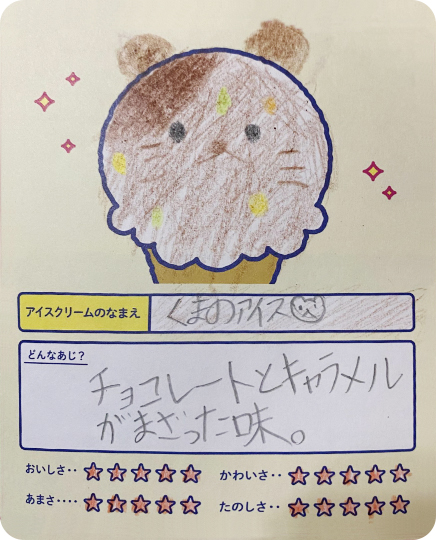 アイスクリームのなまえ
くまのアイス
どんなあじ？
チョコレートとキャラメル
がまざった味。
おいしさ‥ ★★★★★
かわいさ‥ ★★★★★
あまさ‥‥ ★★★★★
たのしさ‥ ★★★★★